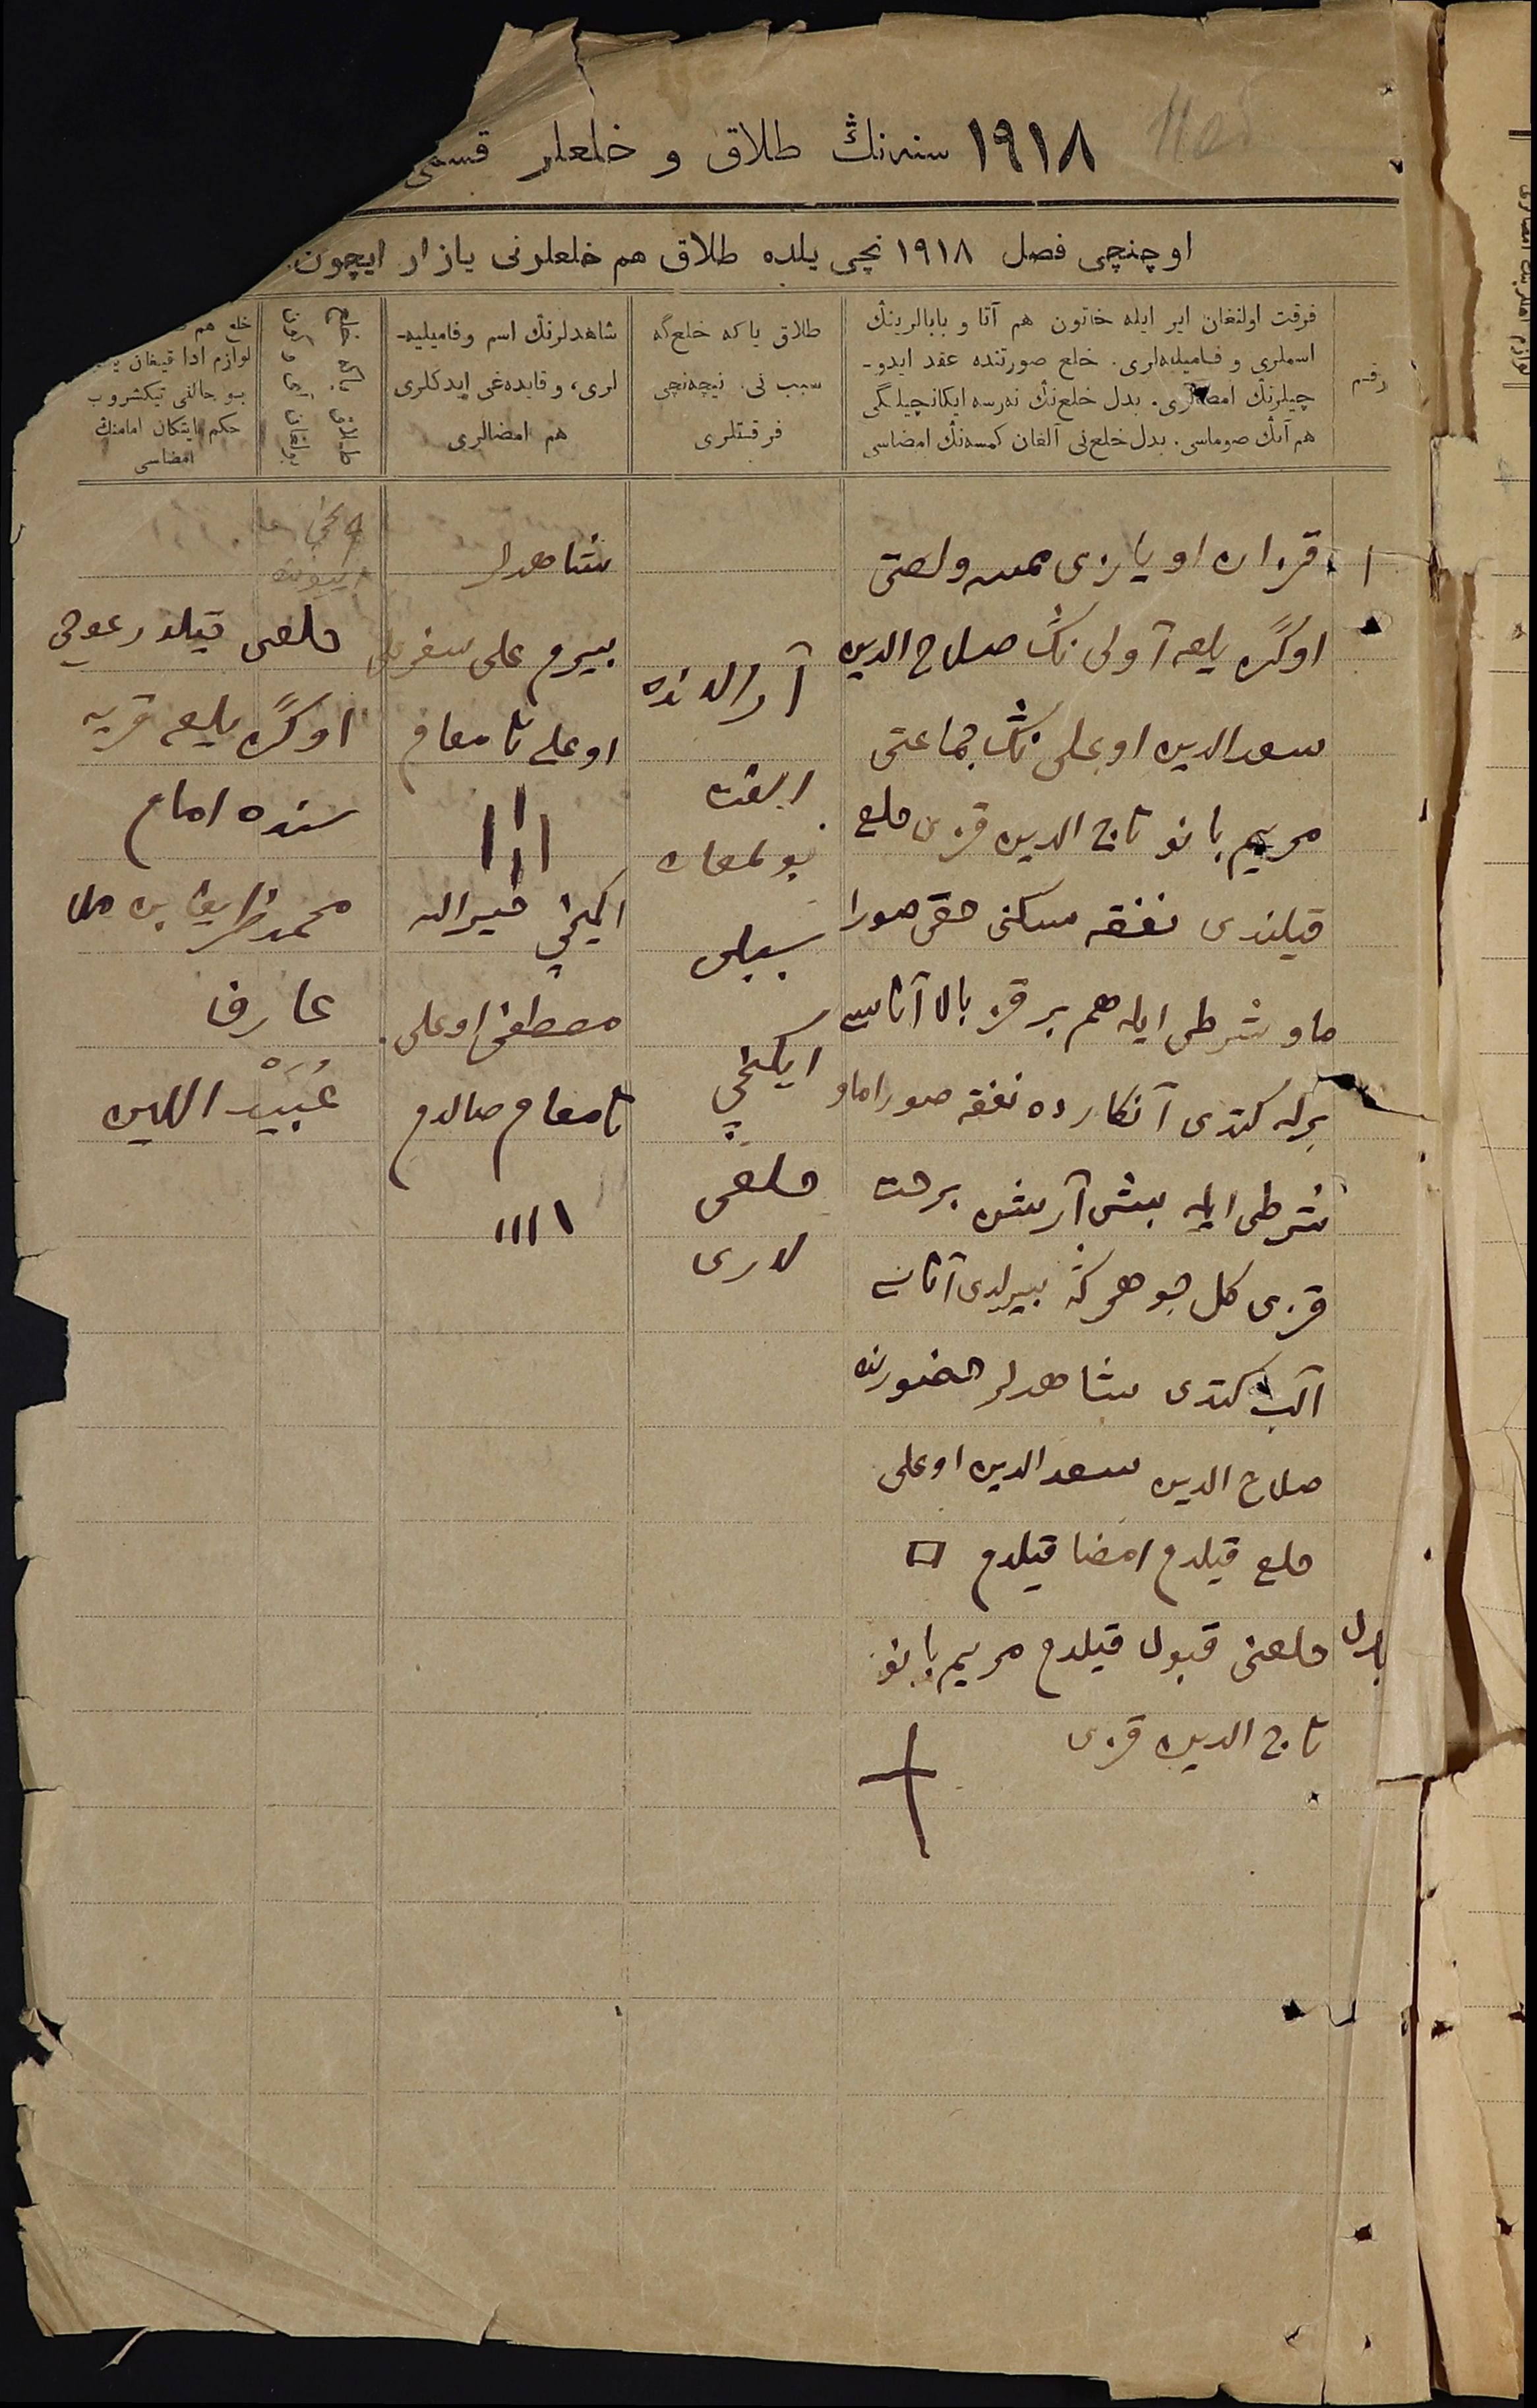 ١٩١٨ سنه‌نڭ طلاق و خلعلر قسمی
اوچنچی فصل ١٩١٨ نچی یلده طلاق هم خلعلرنی یازار ایچون.
رقم
فرقت اولنغان ایر ایله خاتون هم آتا و بابالرینڭ
اسملری و فامیلیه‌لری. خلع صورتنده عقد ایدو-
چیلرنڭ امضالری. بدل خلع‌نڭ نه‌رسه ایکانچیلگی
هم آنڭ صوماسی. بدل خلع‌نی آلغان کمسه‌نڭ امضاسی
طلاق یا‌که خلع‌گه
سبب نی. نیچه‌نچی
فرقتلری
شاهدلرنڭ اسم وفامیلیه-
لری، و قایده‌غی ایدکلری
هم امضالری
طلاق یا‌که خلع
بولغان آی و کون
خلع هم
لوازم ادا قیغان
بو حالنی تیکشروب
حکم ایتکان امامنڭ
امضاسی
١
قزان اویازی ولصتی
اوگره یلعه آولی نڭ صلاح الدین
سعدالدین اوغلی نڭ جماعتی
مریم بانو تاج الدین قزین خلع
قیلندی نفقه سکنی حقی صورا
ماو شرطی ایله هم بر قز بالا آناسی
برله کتدی آنکارده نفقه صوراماو
شرطی ایله بیش آرشن برحت
قزی کل جوهرگه بیرلدی آناسی
آلب کتدی شاهدلر حضورنده
صلاح الدین سعدالدین اوغلی
خلع قیلدم امضا قیلدم
بدل خلعنی قبول قیلدم مریم بانو
تاج الدین قزی
آرالرنده
الفت
بولمغان
سببلی
ایکنچی
خلعی
لری
شاهدلر
بیرم علی سفرعلی
اوغلی تامغام
ایکنچی خیرالله
مصطفی اوغلی
تامغام صالدم
خلعی قیلدرغوچی
اوگره یلعه قریه
سنده امام
محمدظریف بن ملا
عارف
عبید اللهین